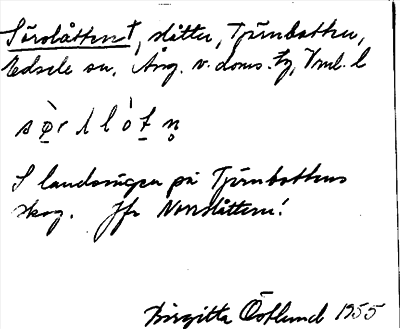 Sörslåtten†, slåtter, Tjärnbotten,
Edsele sn, Ång. v. doms. tg, Vnl. l
S landsvägen på Tjärnbottens
skog. Jfr Norrslåtten!
Birgitta Östlund 1955